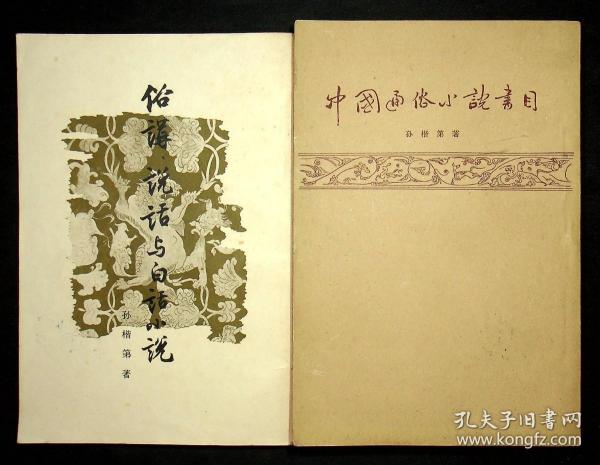 俗講·說话与白话小說
孙楷第著
中國通俗小說書目
孙楷第著
孔夫子旧书网
www.kongfz.com